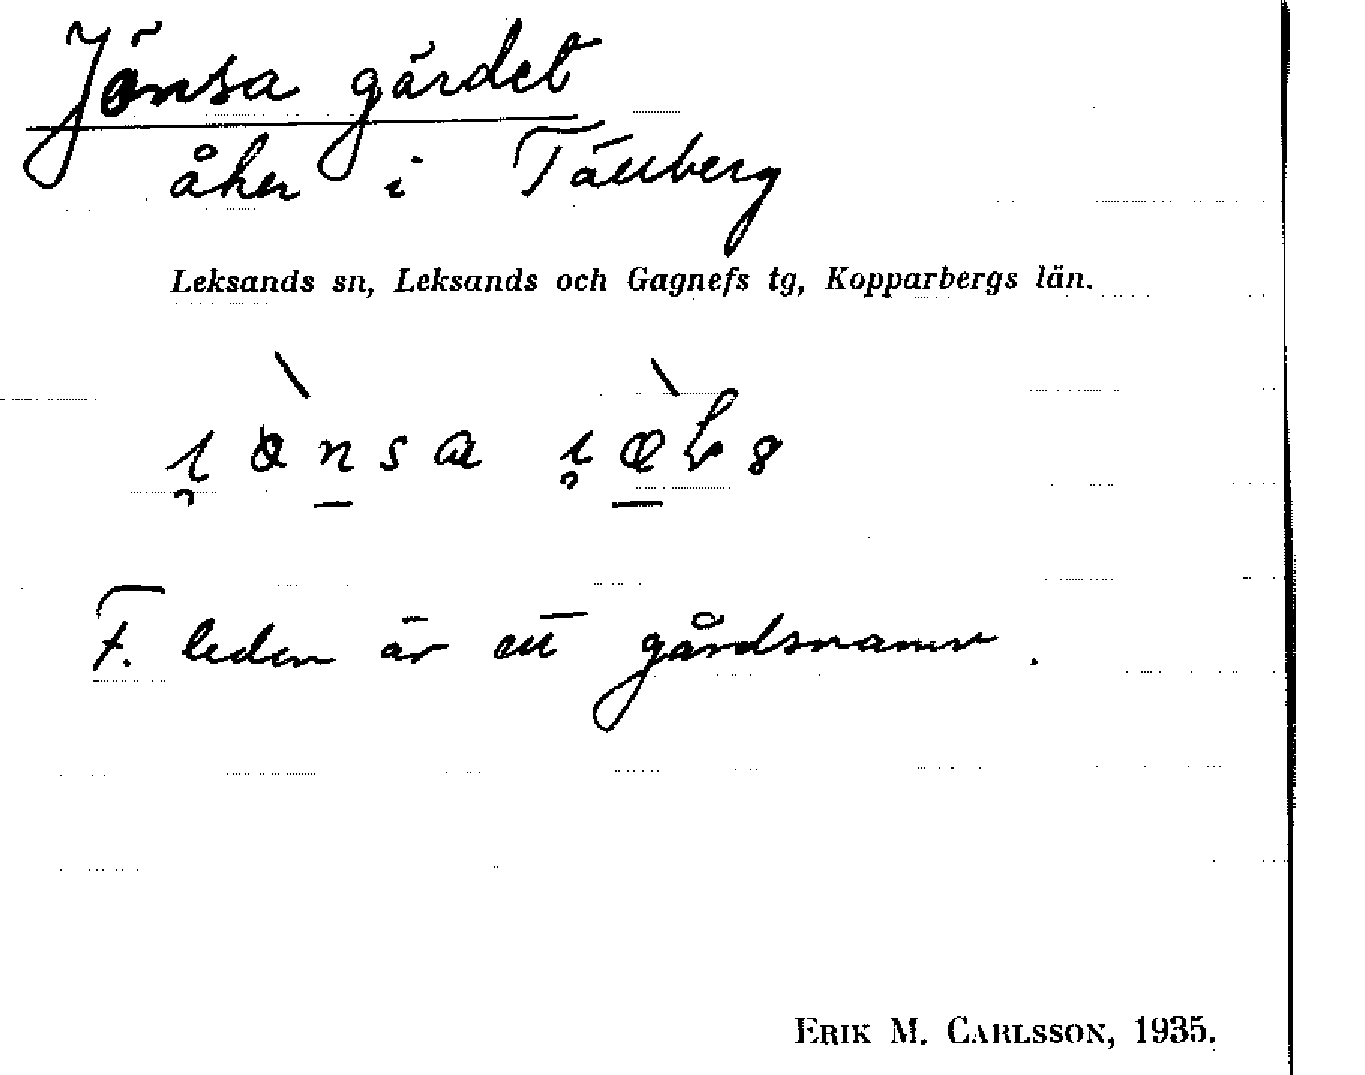 Jönsa gärdet
åker i Tällberg
Leksands sn, Leksands och Gagnefs tg, Kopparbergs län.
F. leden är ett gårdsnamn.
ERIK M. CARLSSON, 1935.